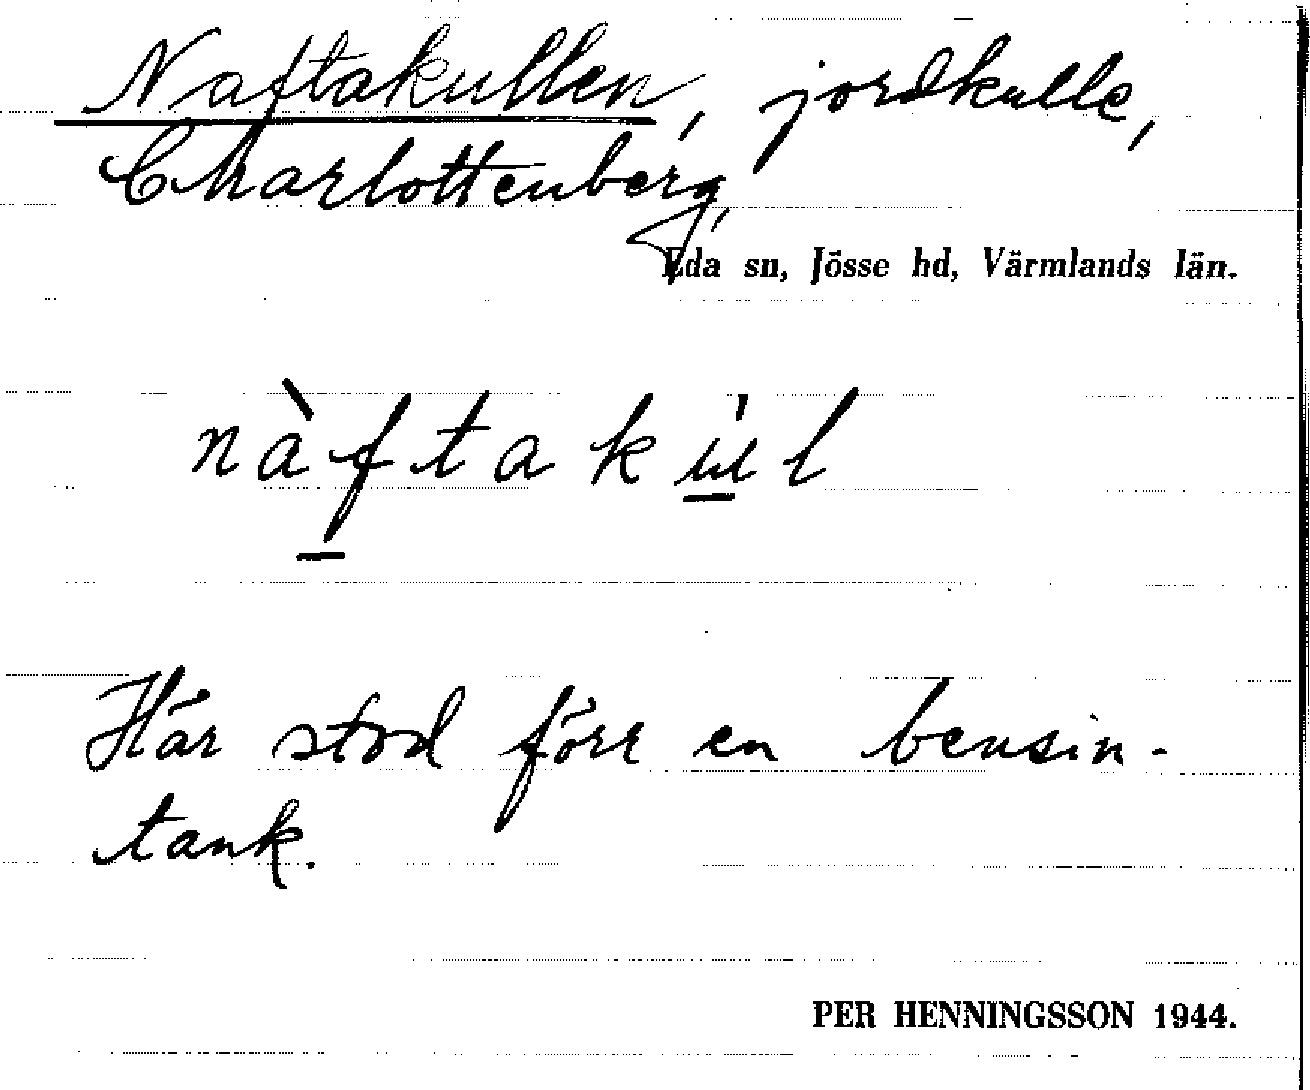 Naftakullen, jordkulle,
Charlottenberg,
Eda sn, Jösse hd, Värmlands län.
nàf̲taku̲̍l
Här stod förr en bensin-
tank.
PER HENNINGSSON 1944.